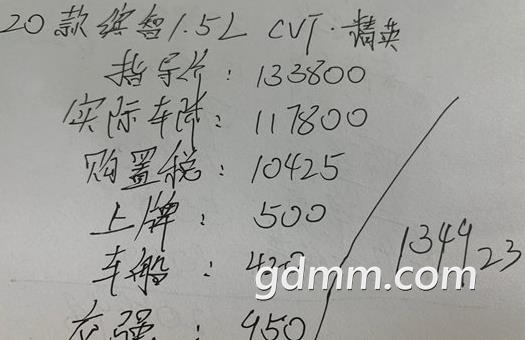 20款缤智1.5L CVT·精英
指导价：133800
实际车价：117800
购置税：10425
上牌：500
车船：420
交强：950
134923
gdmm.com